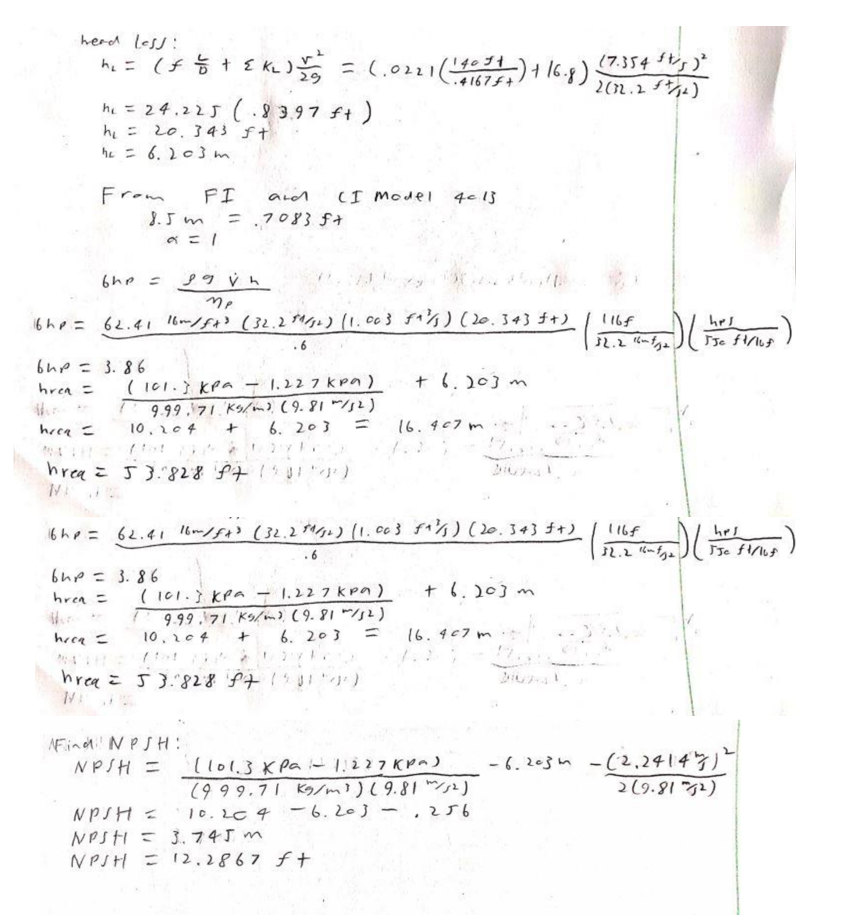 head loss:
h_L = (f L/D + Σ K_L) v²/2g = (.0221 (140 ft/.4167 ft) + 16.8) (7.354 ft/s)²/2(32.2 ft/s²)
h_L = 24.225 (.8397 ft)
h_L = 20.343 ft
h_L = 6.203 m
From FI and CI Model 4013
8.5 in = .7083 ft
α = 1
bhp = ρ g V̇ h / η_p
bhp = 62.41 lbm/ft³ (32.2 ft/s²) (1.003 ft³/s) (20.343 ft) / .6 (1 lbf / 32.2 lbm ft/s²) (hp s / 550 ft/lbf)
bhp = 3.86
hreq = (101.3 KPa − 1.227 KPa) / 999.71 Kg/m³ (9.81 m/s²) + 6.203 m
hreq = 10.204 + 6.203 = 16.407 m
hreq = 53.828 ft
bhp = 62.41 lbm/ft³ (32.2 ft/s²) (1.003 ft³/s) (20.343 ft) / .6 (1 lbf / 32.2 lbm ft/s²) (hp s / 550 ft/lbf)
bhp = 3.86
hreq = (101.3 KPa − 1.227 KPa) / 999.71 Kg/m³ (9.81 m/s²) + 6.203 m
hreq = 10.204 + 6.203 = 16.407 m
hreq = 53.828 ft
Find NPSH:
NPSH = (101.3 KPa − 1.227 KPa) / (999.71 Kg/m³) (9.81 m/s²) − 6.203 m − (2.2414 m/s)² / 2(9.81 m/s²)
NPSH = 10.204 − 6.203 − .256
NPSH = 3.745 m
NPSH = 12.2867 ft